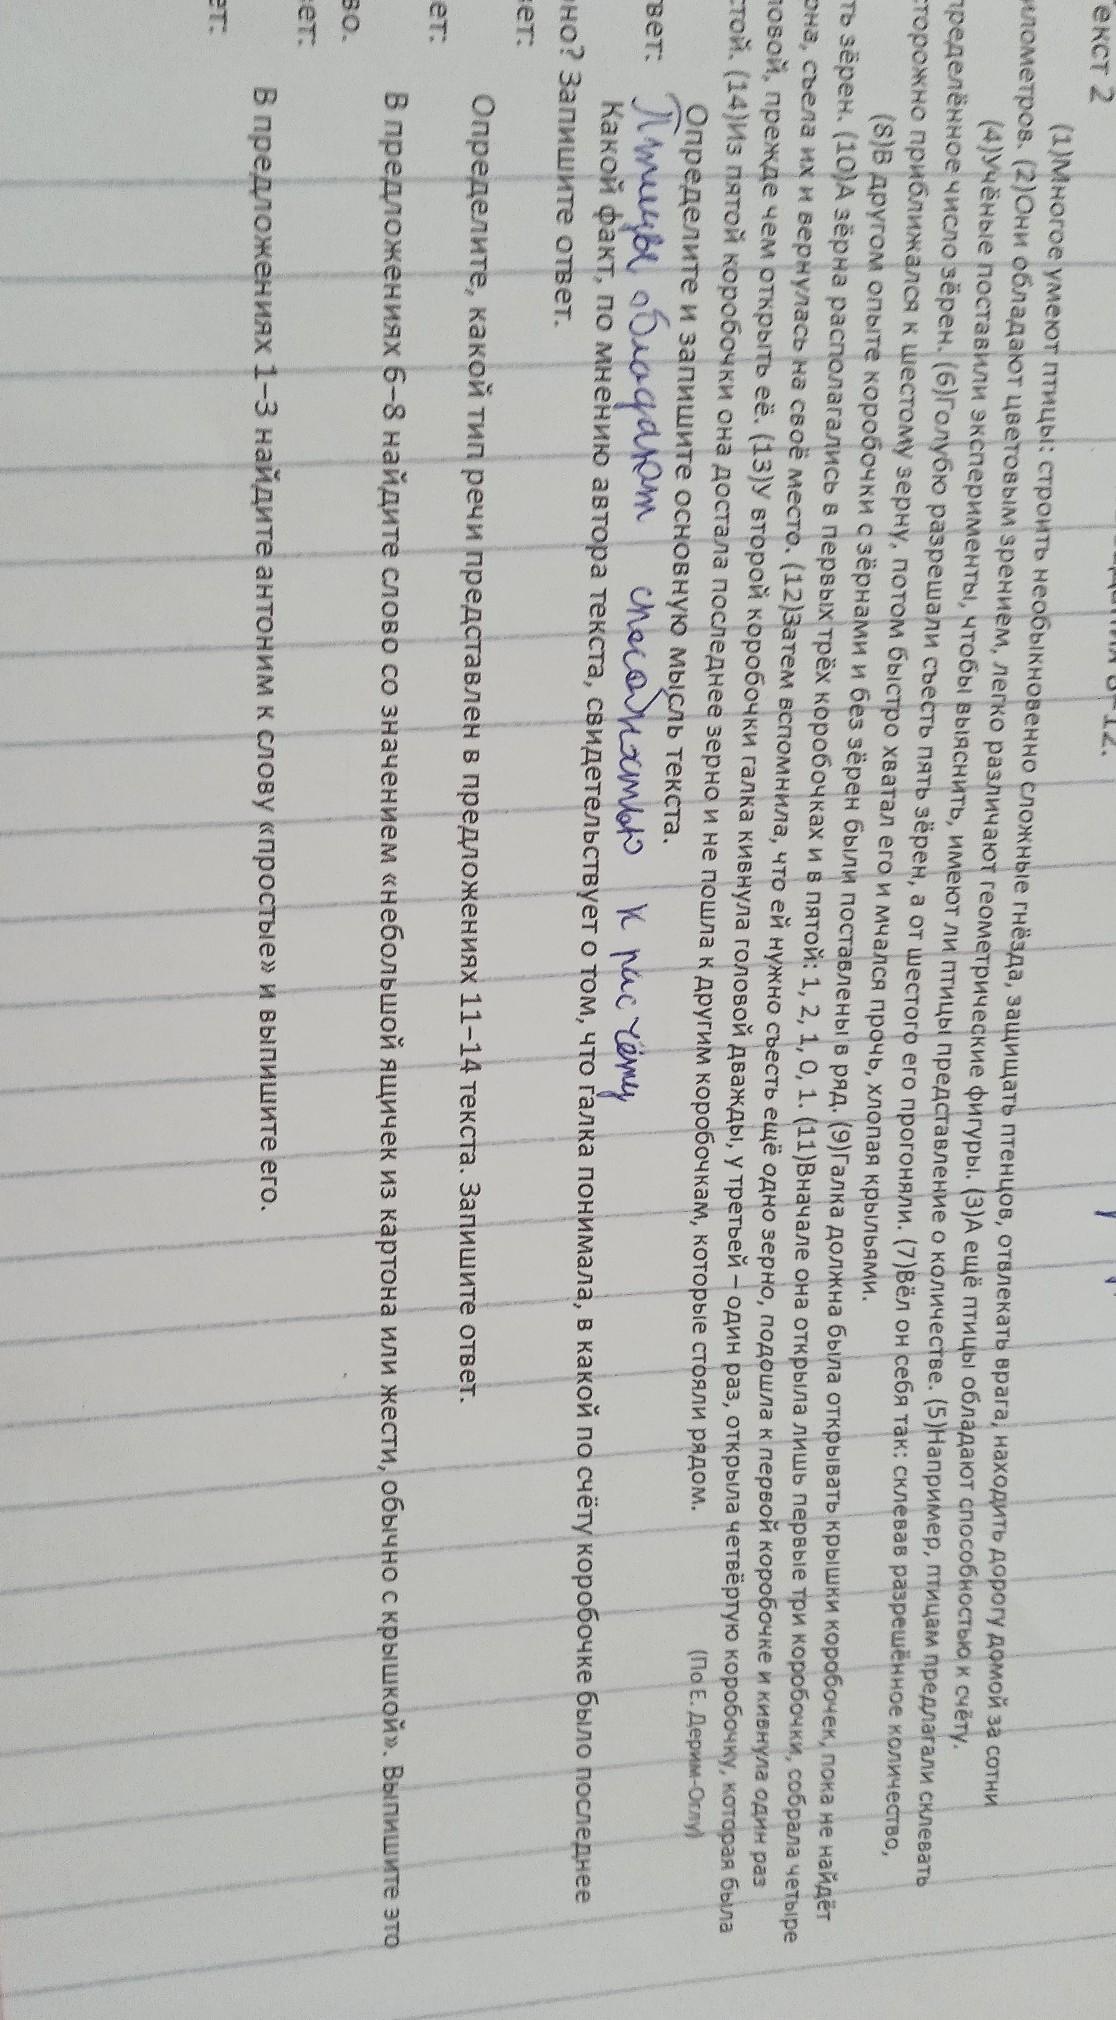 екст 2
(1)Многое умеют птицы: строить необыкновенно сложные гнёзда, защищать птенцов, отвлекать врага, находить дорогу домой за сотни
илометров. (2)Они обладают цветовым зрением, легко различают геометрические фигуры. (3)А ещё птицы обладают способностью к счёту.
(4)Учёные поставили эксперименты, чтобы выяснить, имеют ли птицы представление о количестве. (5)Например, птицам предлагали склевать
пределённое число зёрен. (6)Голубю разрешали съесть пять зёрен, а от шестого его прогоняли. (7)Вёл он себя так: склевав разрешённое количество,
сторожно приближался к шестому зерну, потом быстро хватал его и мчался прочь, хлопая крыльями.
(8)В другом опыте коробочки с зёрнами и без зёрен были поставлены в ряд. (9)Галка должна была открывать крышки коробочек, пока не найдёт
ть зёрен. (10)А зёрна располагались в первых трёх коробочках и в пятой: 1, 2, 1, 0, 1. (11)Вначале она открыла лишь первые три коробочки, собрала четыре
рна, съела их и вернулась на своё место. (12)Затем вспомнила, что ей нужно съесть ещё одно зерно, подошла к первой коробочке и кивнула один раз
ловой, прежде чем открыть её. (13)У второй коробочки галка кивнула головой дважды, у третьей – один раз, открыла четвёртую коробочку, которая была
стой. (14)Из пятой коробочки она достала последнее зерно и не пошла к другим коробочкам, которые стояли рядом.
(По Е. Дерим-Оглу)
Определите и запишите основную мысль текста.
вет: Птицы обладают способностью к расчёту
Какой факт, по мнению автора текста, свидетельствует о том, что галка понимала, в какой по счёту коробочке было последнее
рно? Запишите ответ.
вет:
Определите, какой тип речи представлен в предложениях 11–14 текста. Запишите ответ.
ет:
В предложениях 6–8 найдите слово со значением «небольшой ящичек из картона или жести, обычно с крышкой». Выпишите это
во.
ет:
В предложениях 1–3 найдите антоним к слову «простые» и выпишите его.
ет: